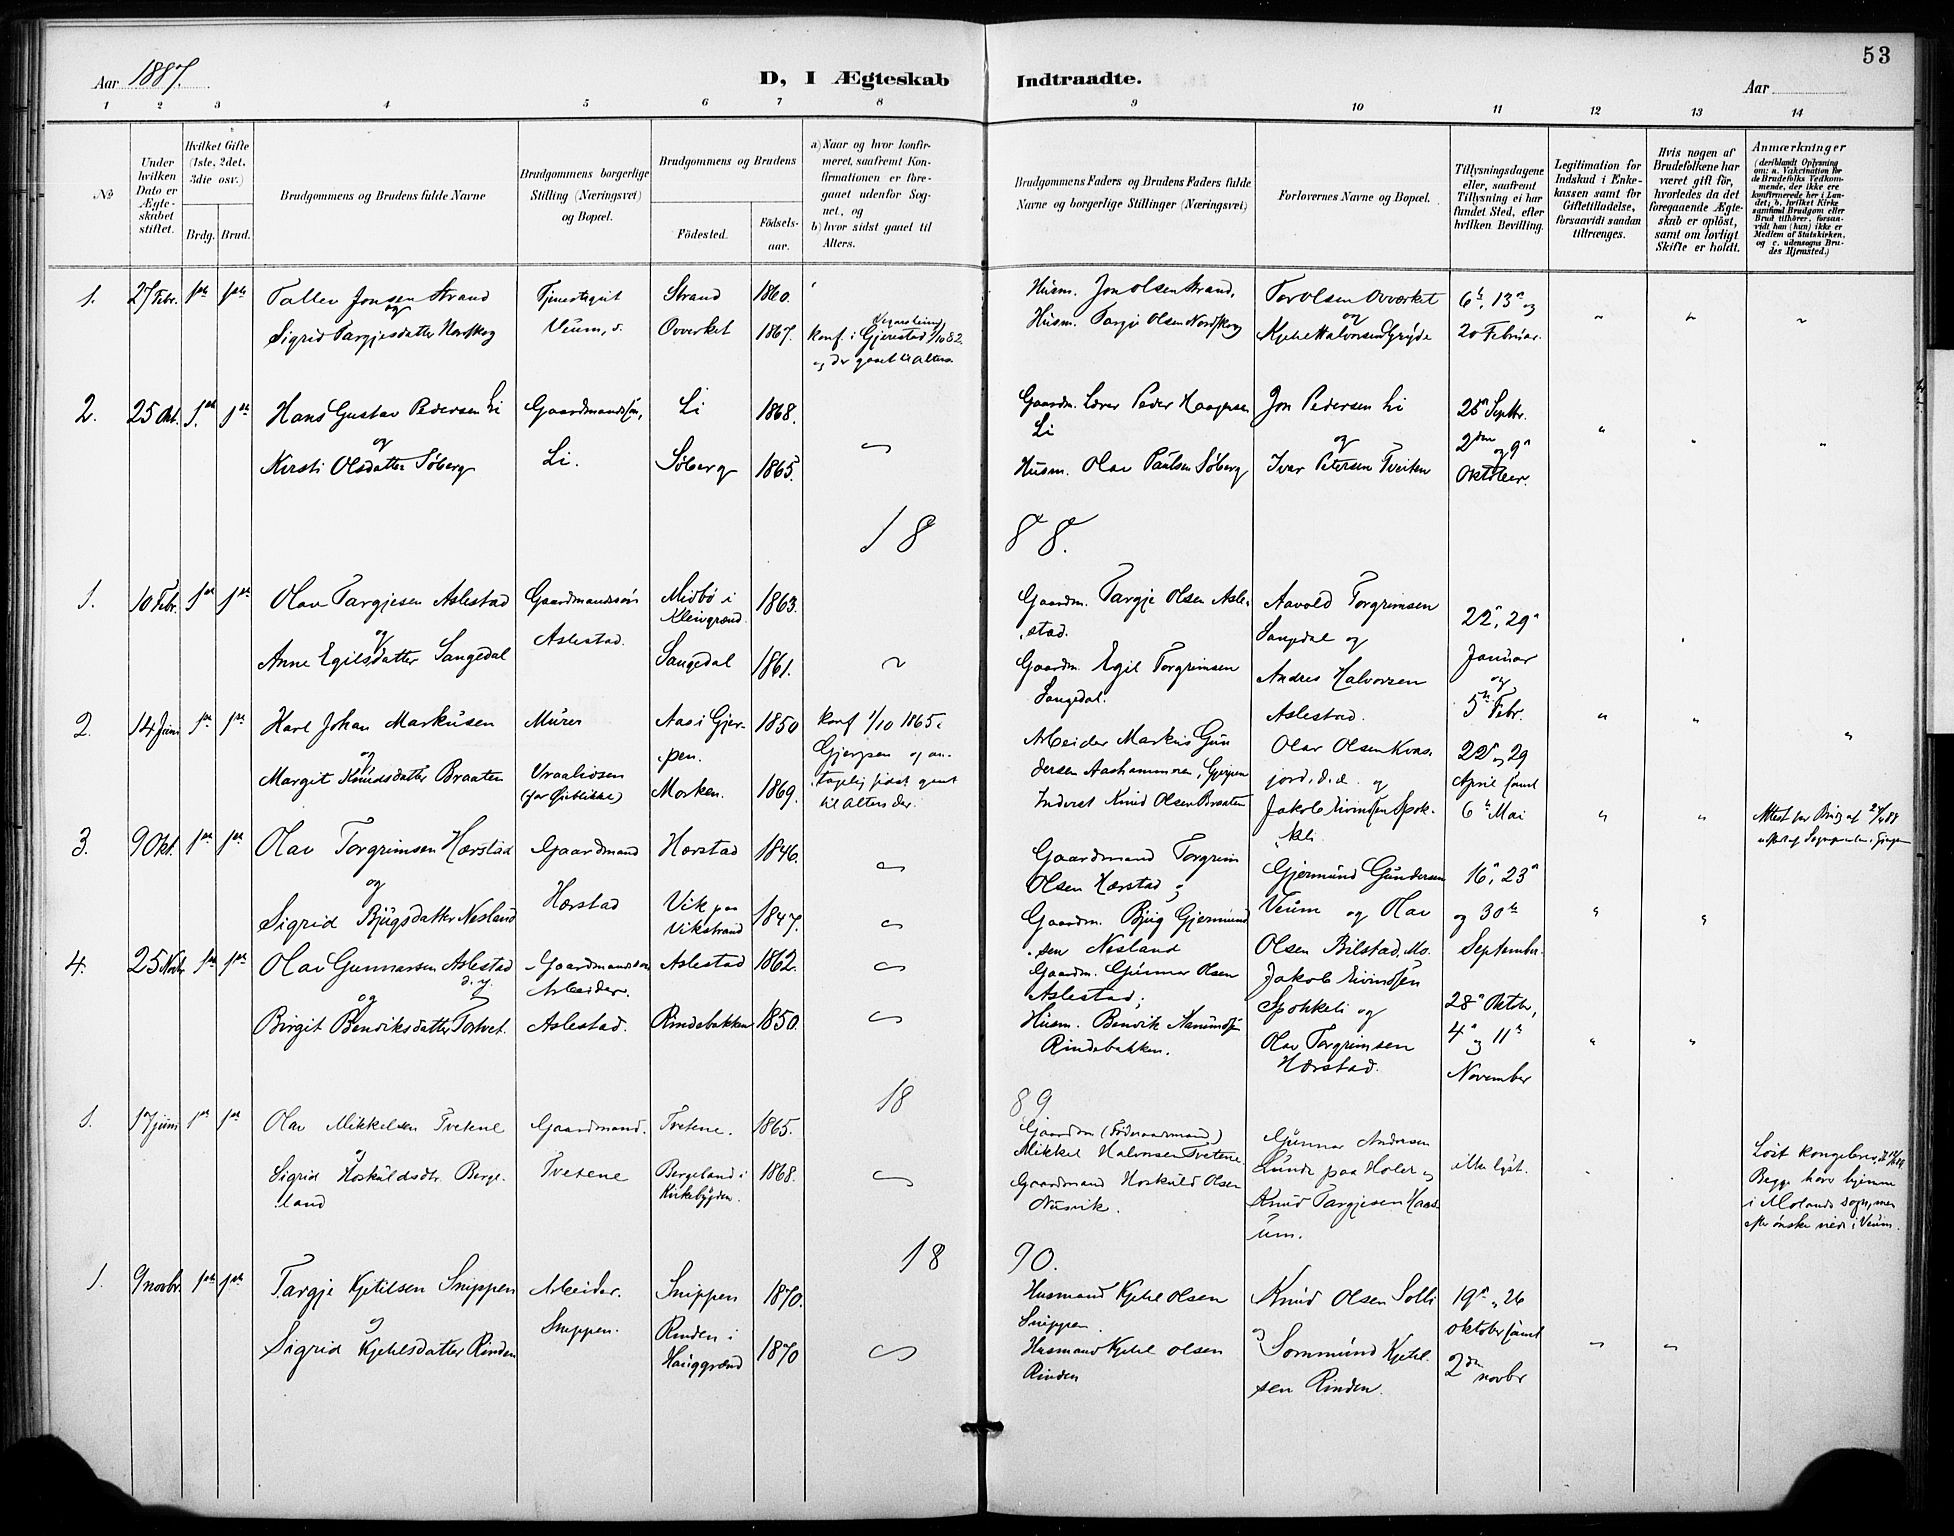 53
Aar 1887.
D, I Ægteskab Indtraadte.
Aar
1 2 3 4 5 6 7 8 9 10 11 12 13 14
No
Under hvilken Dato er Ægteskabet stiftet.
Hvilket Gifte (1ste, 2det, 3die osv.)
Brdg. Brud.
Brudgommens og Brudens fulde Navne
Brudgommens borgerlige Stilling (Næringsvei) og Bopæl.
Brudgommens og Brudens
Fødested. Fødselsaar.
a) Naar og hvor konfirmeret, saafremt Konfirmationen er foregaaet udenfor Sognet, og
b) hvor sidst gaaet til Alters.
Brudgommens Faders og Brudens Faders fulde Navne og borgerlige Stillinger (Næringsvei)
Forlovernes Navne og Bopæl.
Tillysningsdagene eller, saafremt Tillysning ei har fundet Sted, efter hvilken Bevilling.
Legitimation for Indskud i Enkekassen samt for Giftetilladelse, forsaavidt saadan tiltrænges.
Hvis nogen af Brudefolkene har været gift før, hvorledes da det foregaaende Ægteskab er opløst, samt om lovligt Skifte er holdt.
Anmærkninger
(deriblandt Oplysning om: a. Vakcination for de Brudefolks Vedkommende, der ikke ere konfirmerede her i Landet; b. hvilket Kirkesamfund Brudgom eller Brud tilhører, forsaavidt han (hun) ikke er Medlem af Statskirken, og c. udensogns Brudes Hjemsted.)
1. 27 Febr. 1ste 1ste Tallev Jonsen Strand Tjenestegut Strand 1860. Husm. Jon Olsen Strand, Tor Olsen Overket 6te, 13de og
og
Sigrid Targjesdatter Nordskog Veum, Overket 1867. konf. i Gjerestad 1/10 82 Husm. Targje Olsen Nordskog og Kjetil Halvorsen Gryde 20 Februar.
og der gaaet til Alters
2. 25 Okt. 1ste 1ste Hans Gustav Pedersen Li Gaardmandssøn, Li 1868. Gaardm. Lærer Peder Haagensen Jon Pedersen Li 25de Septbr.
og Li og 2den og 9de
Kirsti Olsdatter Søberg Li. Søberg 1865. Husm. Olav Paulsen Søberg Ivar Petersen Tveiten Oktober.
1888.
1. 10 Febr. 1ste 1ste Olav Targjesen Aslestad Gaardmandssøn Midbø i Kleivgrend 1863. Gaardm. Targje Olsen Aslestad. Aavold Torgrimsen 22de, 29de
og Aslestad. Sangedal og Januar
Anne Egilsdatter Sangedal Sangedal 1861. Gaardm. Egil Torgrimsen Sangedal. Andres Halvorsen Aslestad. og 5te Febr.
2. 14 Juni 1ste 1ste Karl Johan Markusen Murer Aas i Gjerpen. 1850 konf 1/10 1865 i Arbeider Markus Gundersen Aashammeren, Gjerpen Olav Olsen Kvasjord, d. e. og 22de og 29
og Gjerpen og antagelig sidst gaaet
Margit Knudsdatter Braaten Vraaliosen Morken. 1869. til Alters der. Inderst Knud Olsen Braaten Jakob Eivindsen Spokkeli April samt 6te Mai
3. 9 Okt. 1ste 1ste Olav Torgrimsen Hærstad Gaardmand Hærstad 1846. Gaardmand Torgrim Olsen Hærstad og Gjermund Gundersen 16de, 23de
og Hærstad Veum og Olav og 30te
Sigrid Bjugsdatter Nesland Vik paa Vikstrand 1847. Gaardm. Bjug Gjermundsen Nesland Olsen Bilstad, Mo. September.
4. 25 Novbr 1ste 1ste Olav Gunnarsen Aslestad d. y. Gaardmandssøn Arbeider. Aslestad 1862. Gaardm. Gunnar Olsen Aslestad; Jakob Eivindsen Spokkeli og 28de Oktbr,
og
Birgit Benviksdatter Tortvet. Aslestad. Rindebakken 1850. Husm. Benvik Aanundsen Rindebakken. Olav Torgrimsen Hærstad. 4de og 11te November
1889
1. 17 juni 1ste 1ste Olav Mikkelsen Tvetene Gaardmand. Tvetene. 1865. Gaardm (Føderaadmand) Mikkel Halvorsen Tvetene. Gunnar Andersen
og Lunde paa Holer og ikke lyst. Løst kongebrev
Sigrid Hoskuldsdtr. Bergeland Tvetene Bergeland i Kirkebygden. 1868. Gaardmand Hoskuld Olsen Nusvik. Knud Targjesen Haasum. Begge have hjemme i Molands sogn, men efter ønske viede i Veum.
1890.
1. 9 novbr. 1ste 1ste Targje Kjetilsen Snippen Arbeider. Snippen 1870. Husmand Kjetil Olsen Snippen. Knud Olsen Solli 19de, 26
og Snippen. og oktober samt
Sigrid Kjetilsdatter Rinden Rinden i Hauggrend 1870 Husmand Kjetil Olsen Rinden Sommund Kjetilsen Rinden. 2den novbr